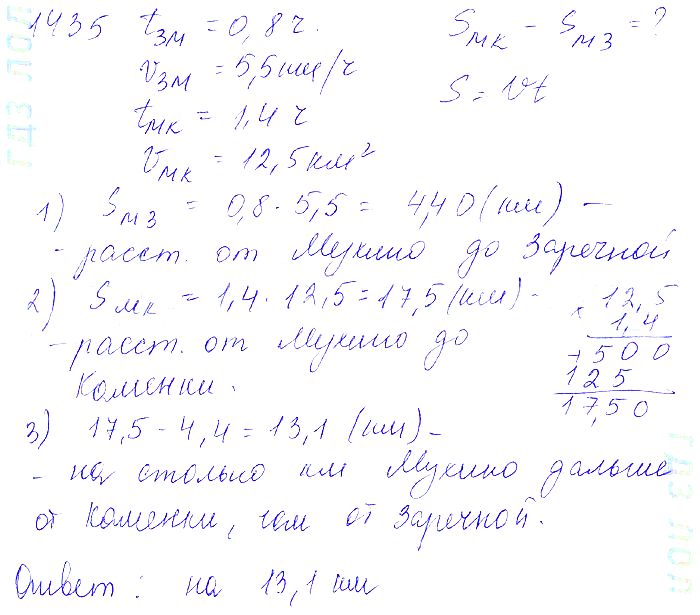 1435 tзм = 0,8 ч. Sмк - Sмз = ?
vзм = 5,5 км/ч S = Vt
tмк = 1,4 ч
vмк = 12,5 км²
1) Sмз = 0,8 · 5,5 = 4,40 (км) —
- расст. от Мукино до Заречной
2) Sмк = 1,4 · 12,5 = 17,5 (км) -
- расст. от Мукино до
Каменки.
× 12,5
1,4
+ 500
125
17,50
3) 17,5 - 4,4 = 13,1 (км) -
- на столько км Мукино дальше
от Каменки, чем от Заречной.
Ответ: на 13,1 км